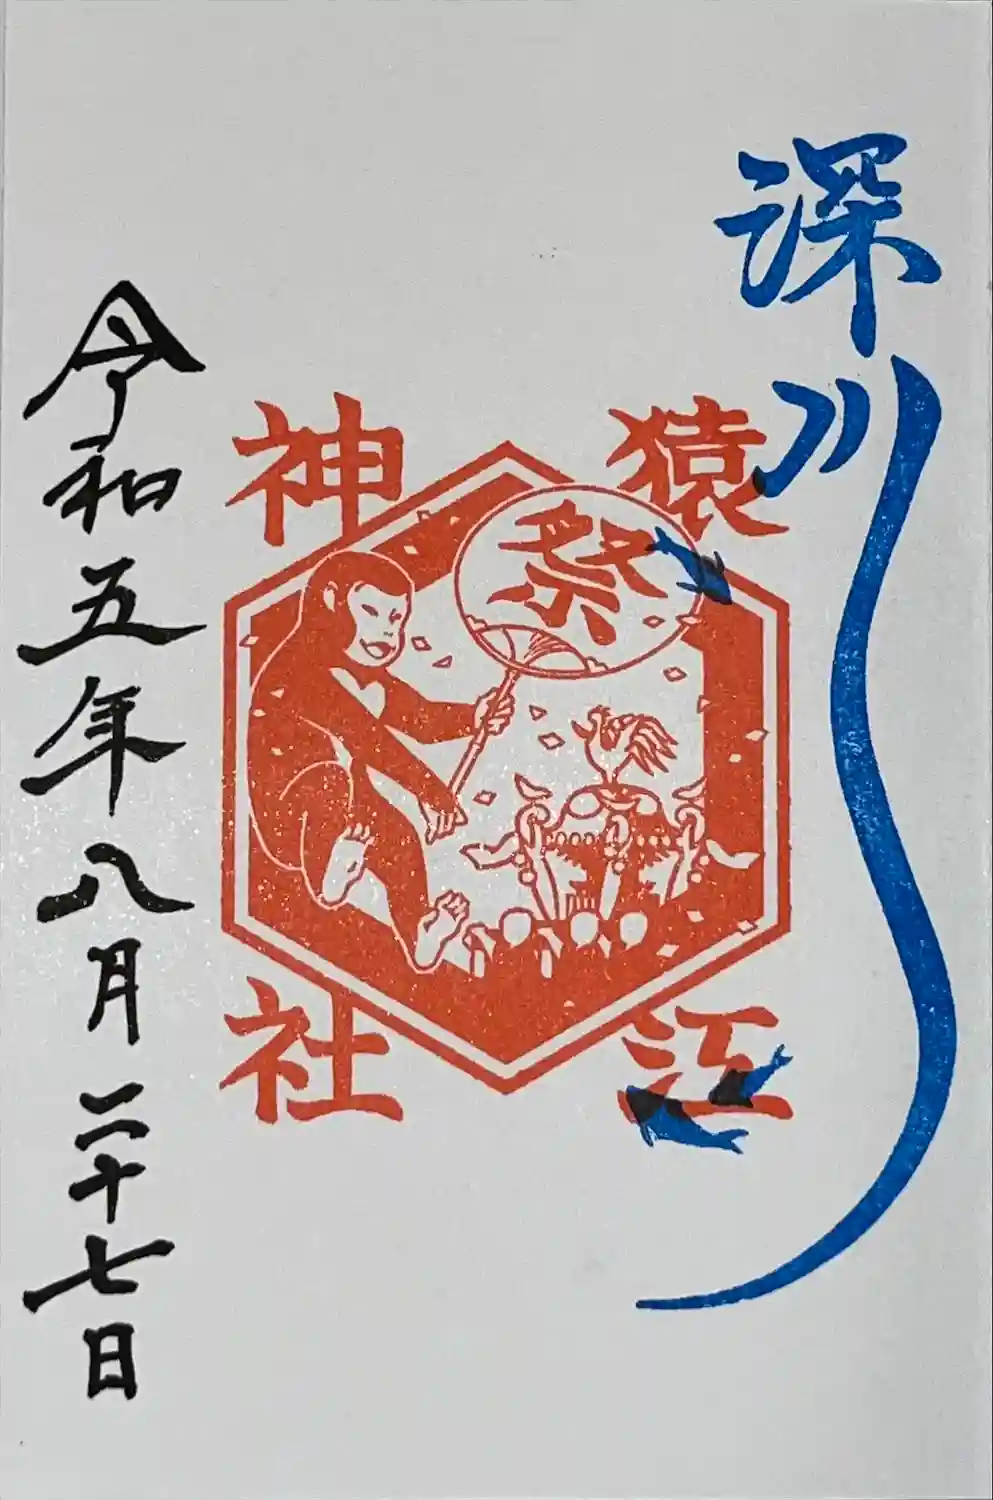 深川
猿江
神社
祭
令和五年八月二十七日